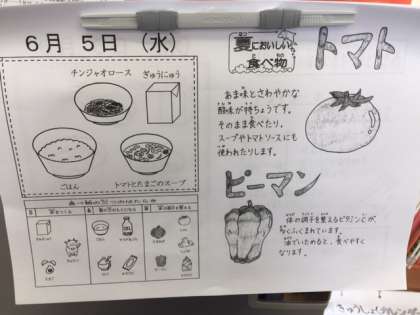 6月5日(水)
チンジャオロース
ぎゅうにゅう
ごはん
トマトとたまごのスープ
夏においしい
食べ物
トマト
あま味とさわやかな
酸味が特ちょうです。
そのまま食べたり、
スープやトマトソースにも
使われたりします。
ピーマン
体の調子を整えるビタミンCが
多くふくまれています。
油でいためると、食べやすく
なります。